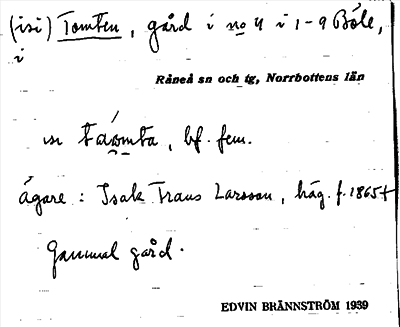 (isi) Tomten, gård i no 4 i 1-9 Böle,
i
Råneå sn och tg, Norrbottens län
, bf. fem.
ägare: Isak Frans Larsson, häg. f. 1865 +
Gammal gård.
EDVIN BRÄNNSTRÖM 1939